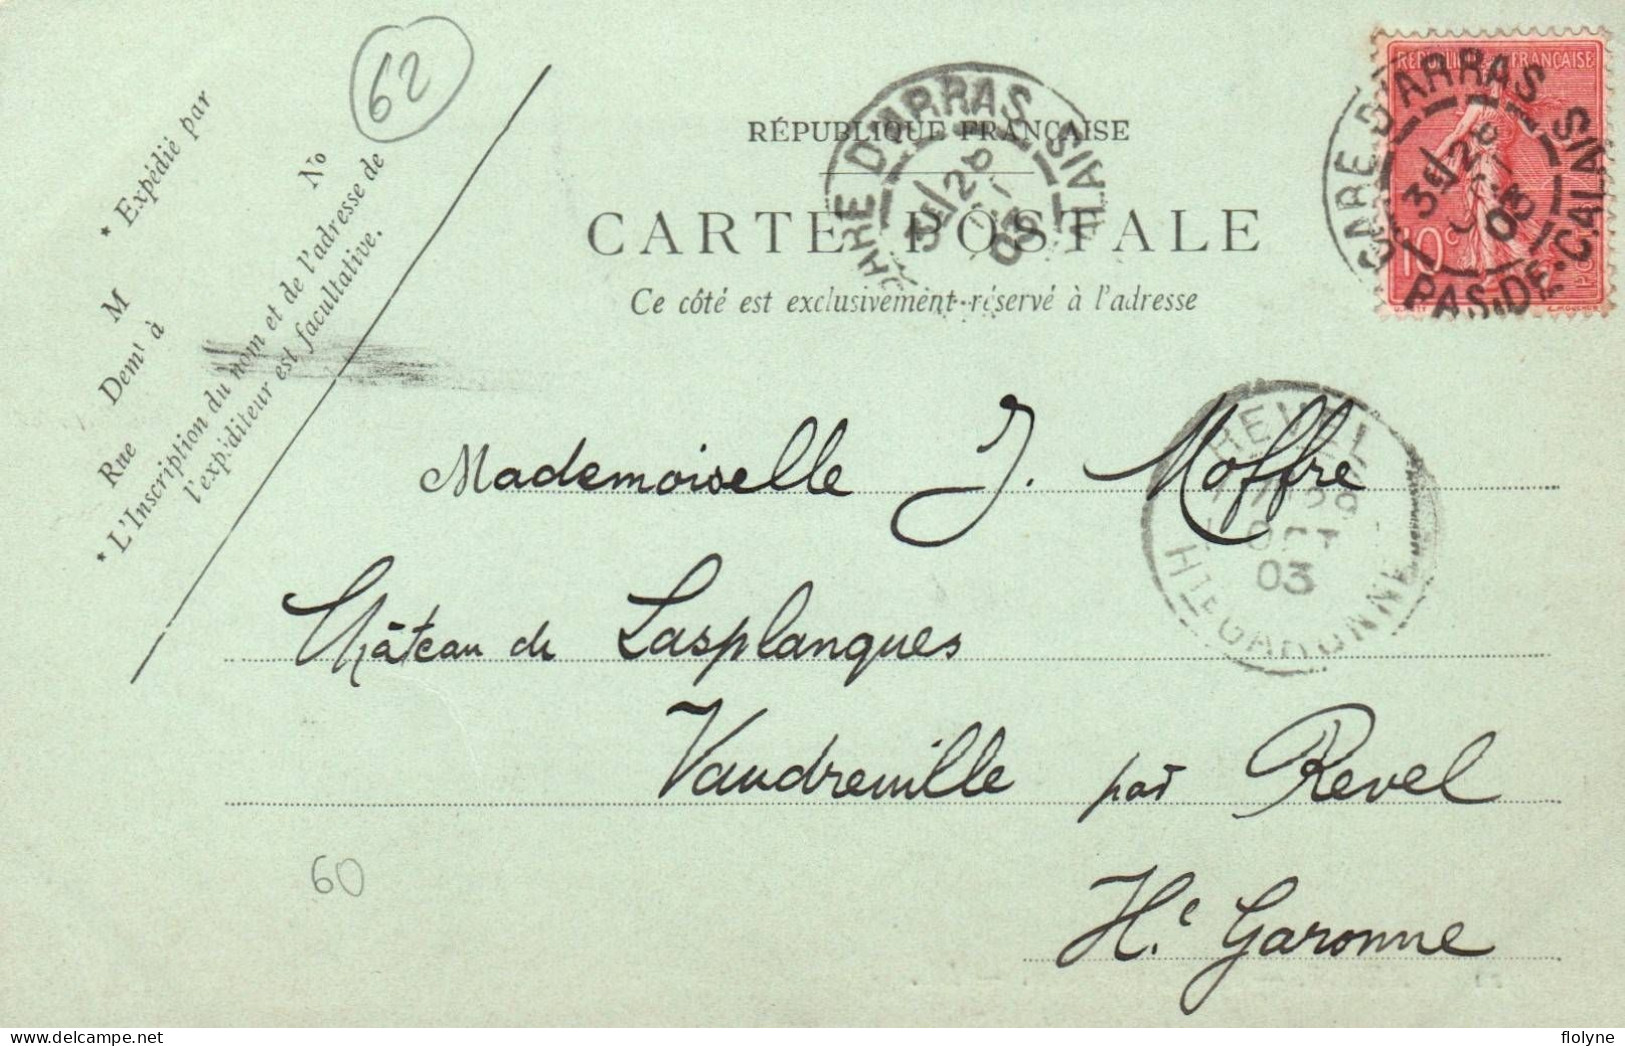 62
* Expédié par
M
Nº
Demt à
Rue
* L'Inscription du nom et de l'adresse de
l'expéditeur est facultative.
RÉPUBLIQUE FRANÇAISE
CARTE POSTALE
Ce côté est exclusivement réservé à l'adresse
GARE D'ARRAS
CALAIS
3E/26
03
RÉPUBLIQUE FRANÇAISE
10c
GARE D'ARRAS
PAS-DE-CALAIS
3E/26
03
REVEL
29
OCT
03
HTE GARONNE
Mademoiselle J. Moffre
Château de Lasplanques
Vaudreuille par Revel
Hte Garonne
60
flolyne